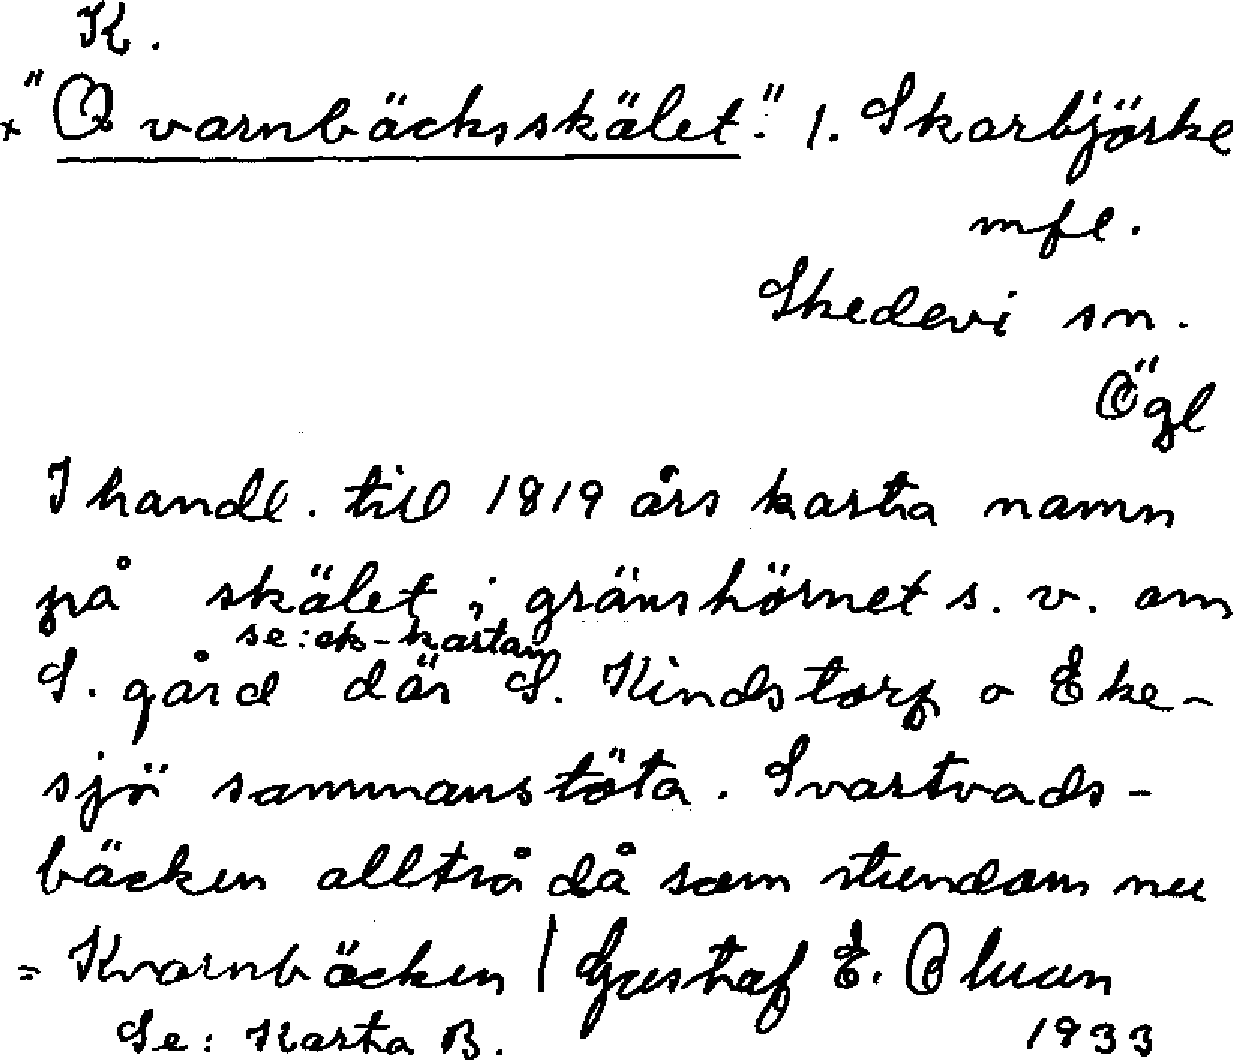 K.
× "Qvarnbäcksskälet". 1. Skarbjörke
mfl.
Skedevi sn.
Ögl
I handl. till 1819 års karta namn
på skälet i gränshörnet s. v. om
se: ek-kartan
S. gård där S. Kindstorp o Eke-
sjö sammanstöta. Svartvads-
bäcken alltså då som stundom nu
= Kvarnbäcken / Gustaf E. Oluan
Se: Karta B. 1933